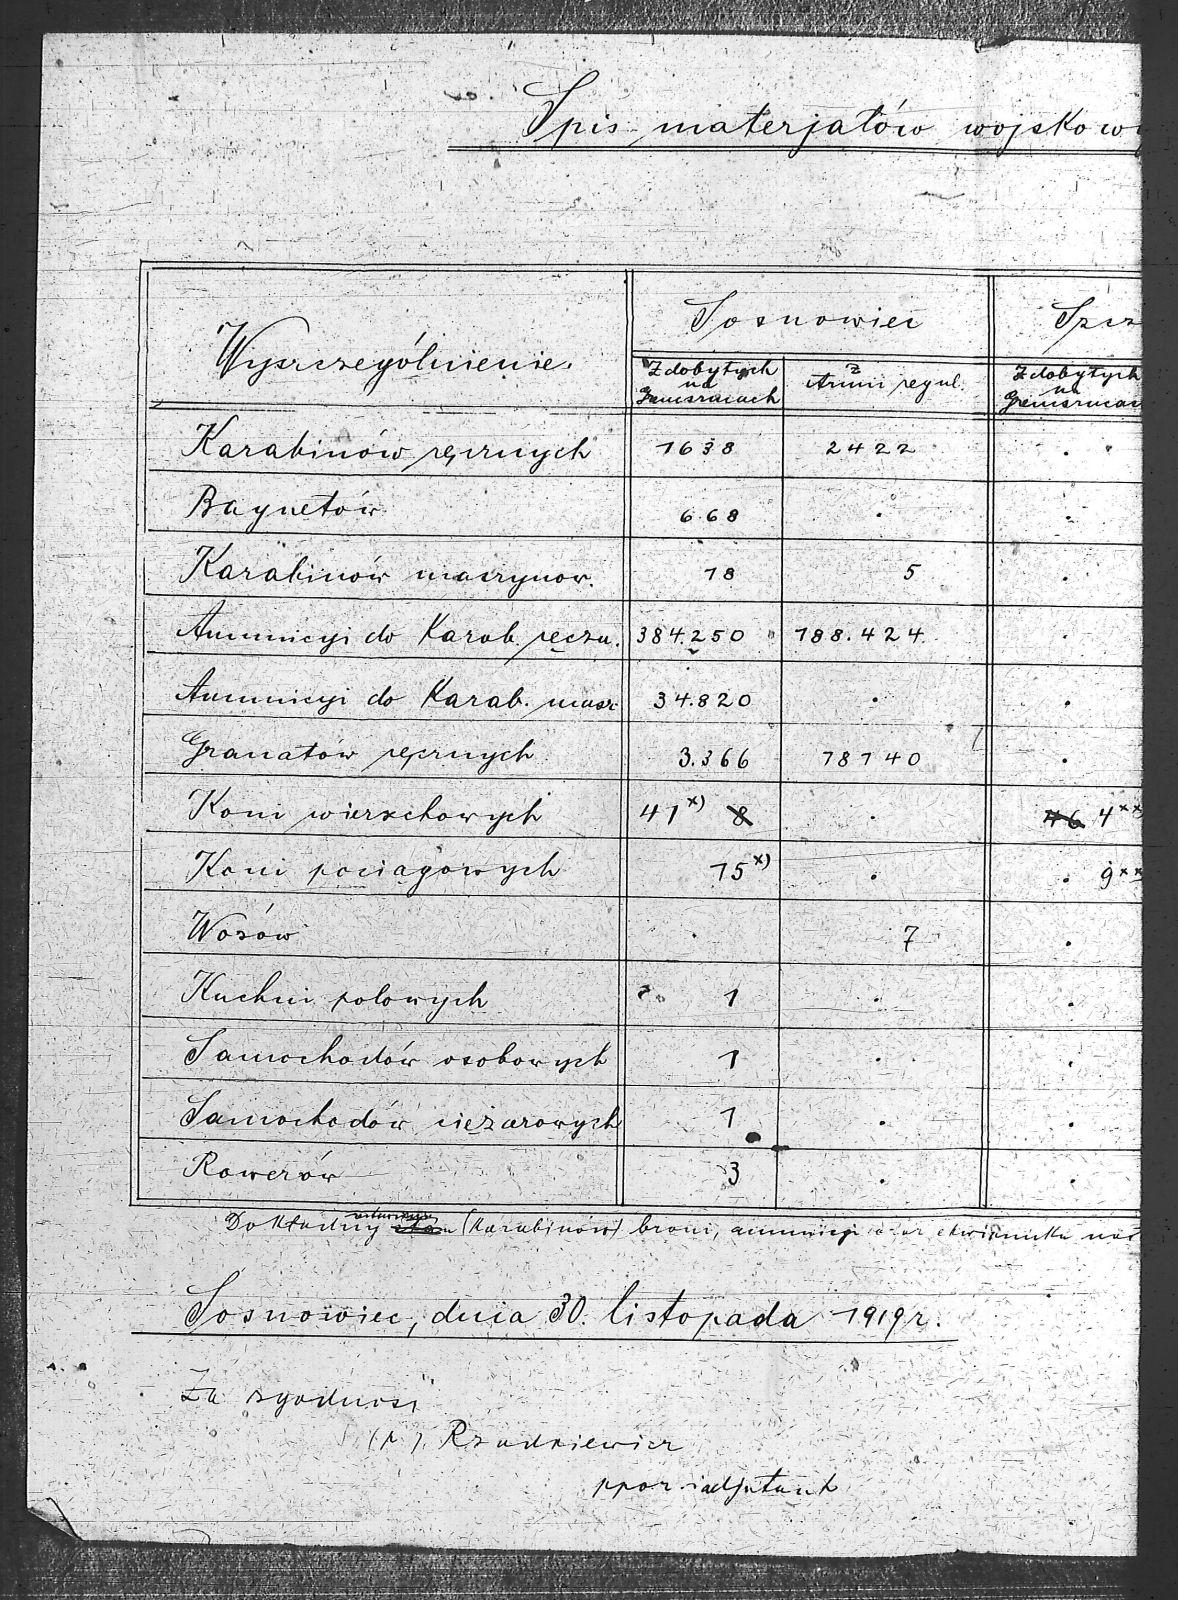 Spis materjałów wojskowy
Wyszczególnienie. Sosnowiec Szcz
Zdobytych na Grenszucach z Armii regul. Zdobytych na Grenszucach
Karabinów ręcznych 1638 2422 .
Bagnetów 668 . .
Karabinów maszynow. 18 5 .
Ammnicyi do Karab. ręczn. 384.250 188.424. .
Ammnicyi do Karab. masz. 34.820 . .
Granatów ręcznych 3.366 18140 .
Koni wierzchowych 41x) 8 . 46 4xx
Koni pociągowych 15x) . . 9xx
Wozów . 7 .
Kuchni polowych 1 . .
Samochodów osobowych 1 . .
Samochodów ciężarowych 1 . .
Rowerów 3 . .
Dokładny (Karabinów) broni, ammnicyi oraz ekwipunku
Sosnowiec, dnia 30. listopada 1919 r.
Za zgodność
(p). Rzadkiewicz
ppor. i adjutant